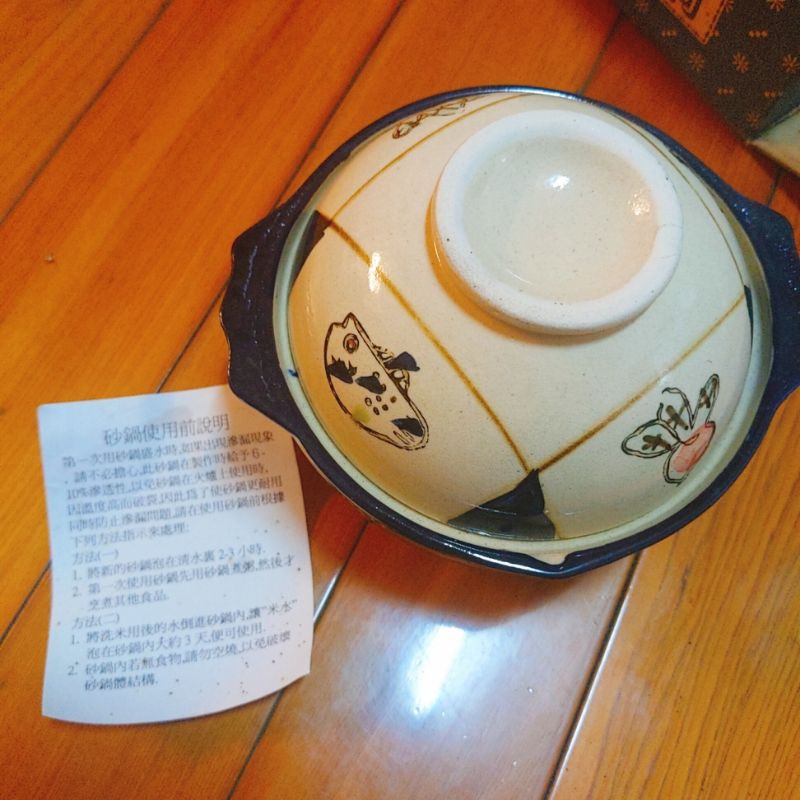 砂鍋使用前說明
第一次用砂鍋盛水時,如果出現滲漏現象
,請不必擔心,此砂鍋在製作時給予6-
10%滲透性,以免砂鍋在火爐上使用時,
因溫度高而破裂.因此爲了使砂鍋更耐用
同時防止滲漏問題,請在使用砂鍋前根據
下列方法指示來處理:
方法(一)
1. 將新的砂鍋泡在清水裏2-3小時.
2. 第一次使用砂鍋先用砂鍋煮粥,然後才
烹煮其他食品.
方法(二)
1. 將洗米用後的水倒進砂鍋內,讓"米水"
泡在砂鍋內大約3天,便可使用.
2. 砂鍋內若無食物,請勿空燒,以免破壞
砂鍋體結構.